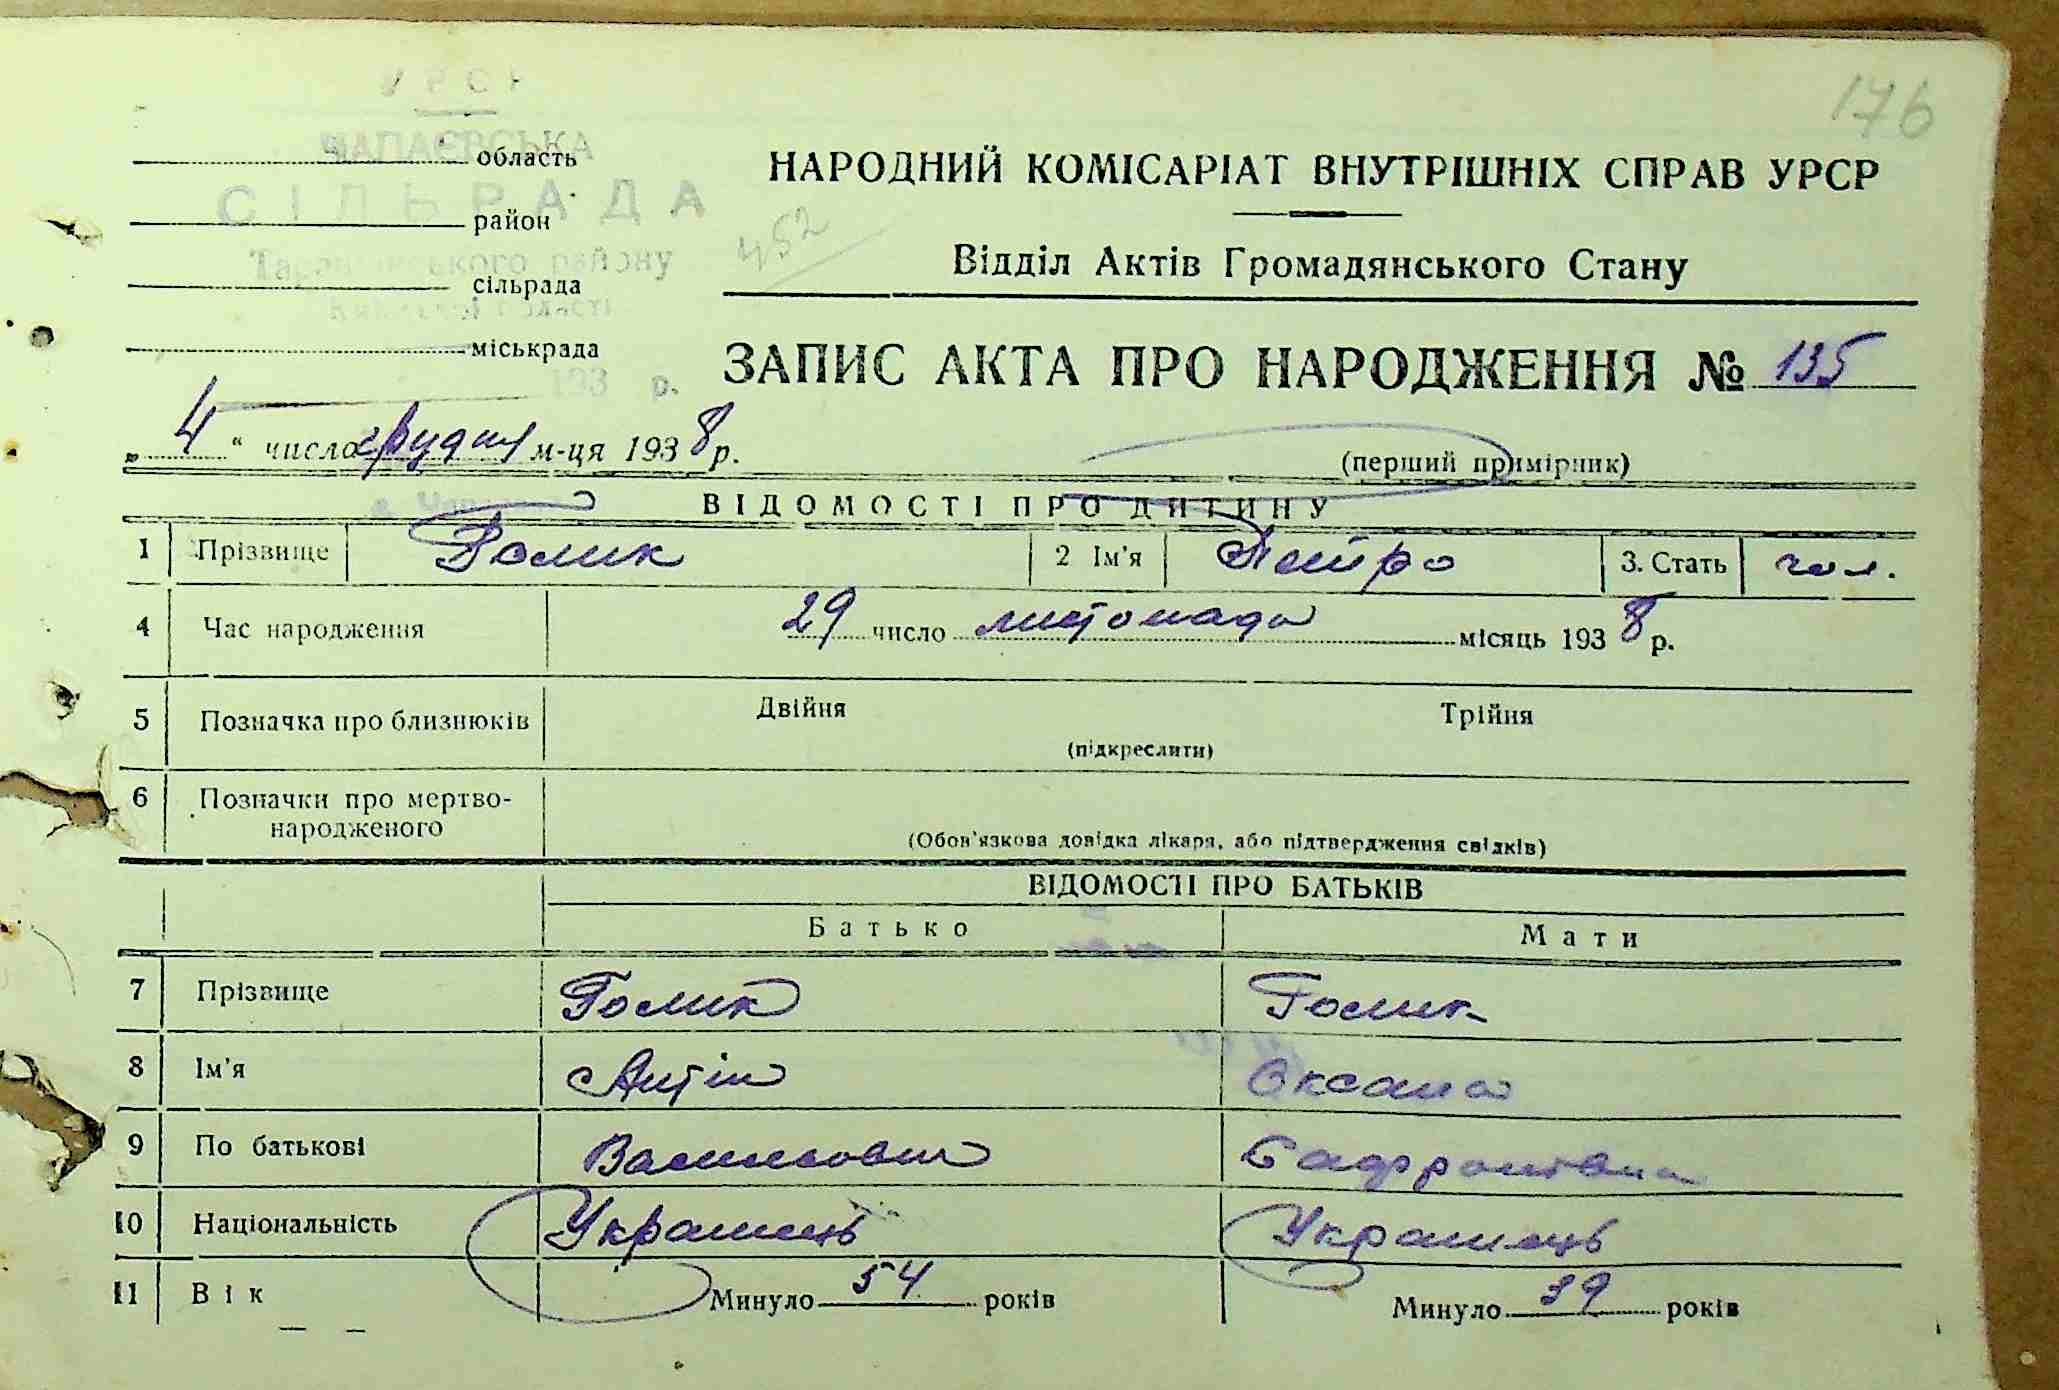 176
УРСР
ЧАПАЄВСЬКА
область
СІЛЬРАДА
район
району
452
сільрада
області
міськрада
193 р.
НАРОДНИЙ КОМІСАРІАТ ВНУТРІШНІХ СПРАВ УРСР
Відділ Актів Громадянського Стану
ЗАПИС АКТА ПРО НАРОДЖЕННЯ № 135
„ 4 “ число грудня м-ця 1938 р.
(перший примірник)
ВІДОМОСТІ ПРО ДИТИНУ
1 Прізвище Голик 2 Ім'я Петро 3. Стать чол.
4 Час народження 29 число листопада місяць 1938 р.
5 Позначка про близнюків Двійня Трійня
(підкреслити)
6 Позначки про мертво-
народженого
(Обов'язкова довідка лікаря, або підтвердження свідків)
ВІДОМОСТІ ПРО БАТЬКІВ
Батько Мати
7 Прізвище Голик Голик
8 Ім'я Антін Оксана
9 По батькові Васильович Сафронівна
10 Національність Українець Українець
11 Вік Минуло 54 років Минуло 39 років